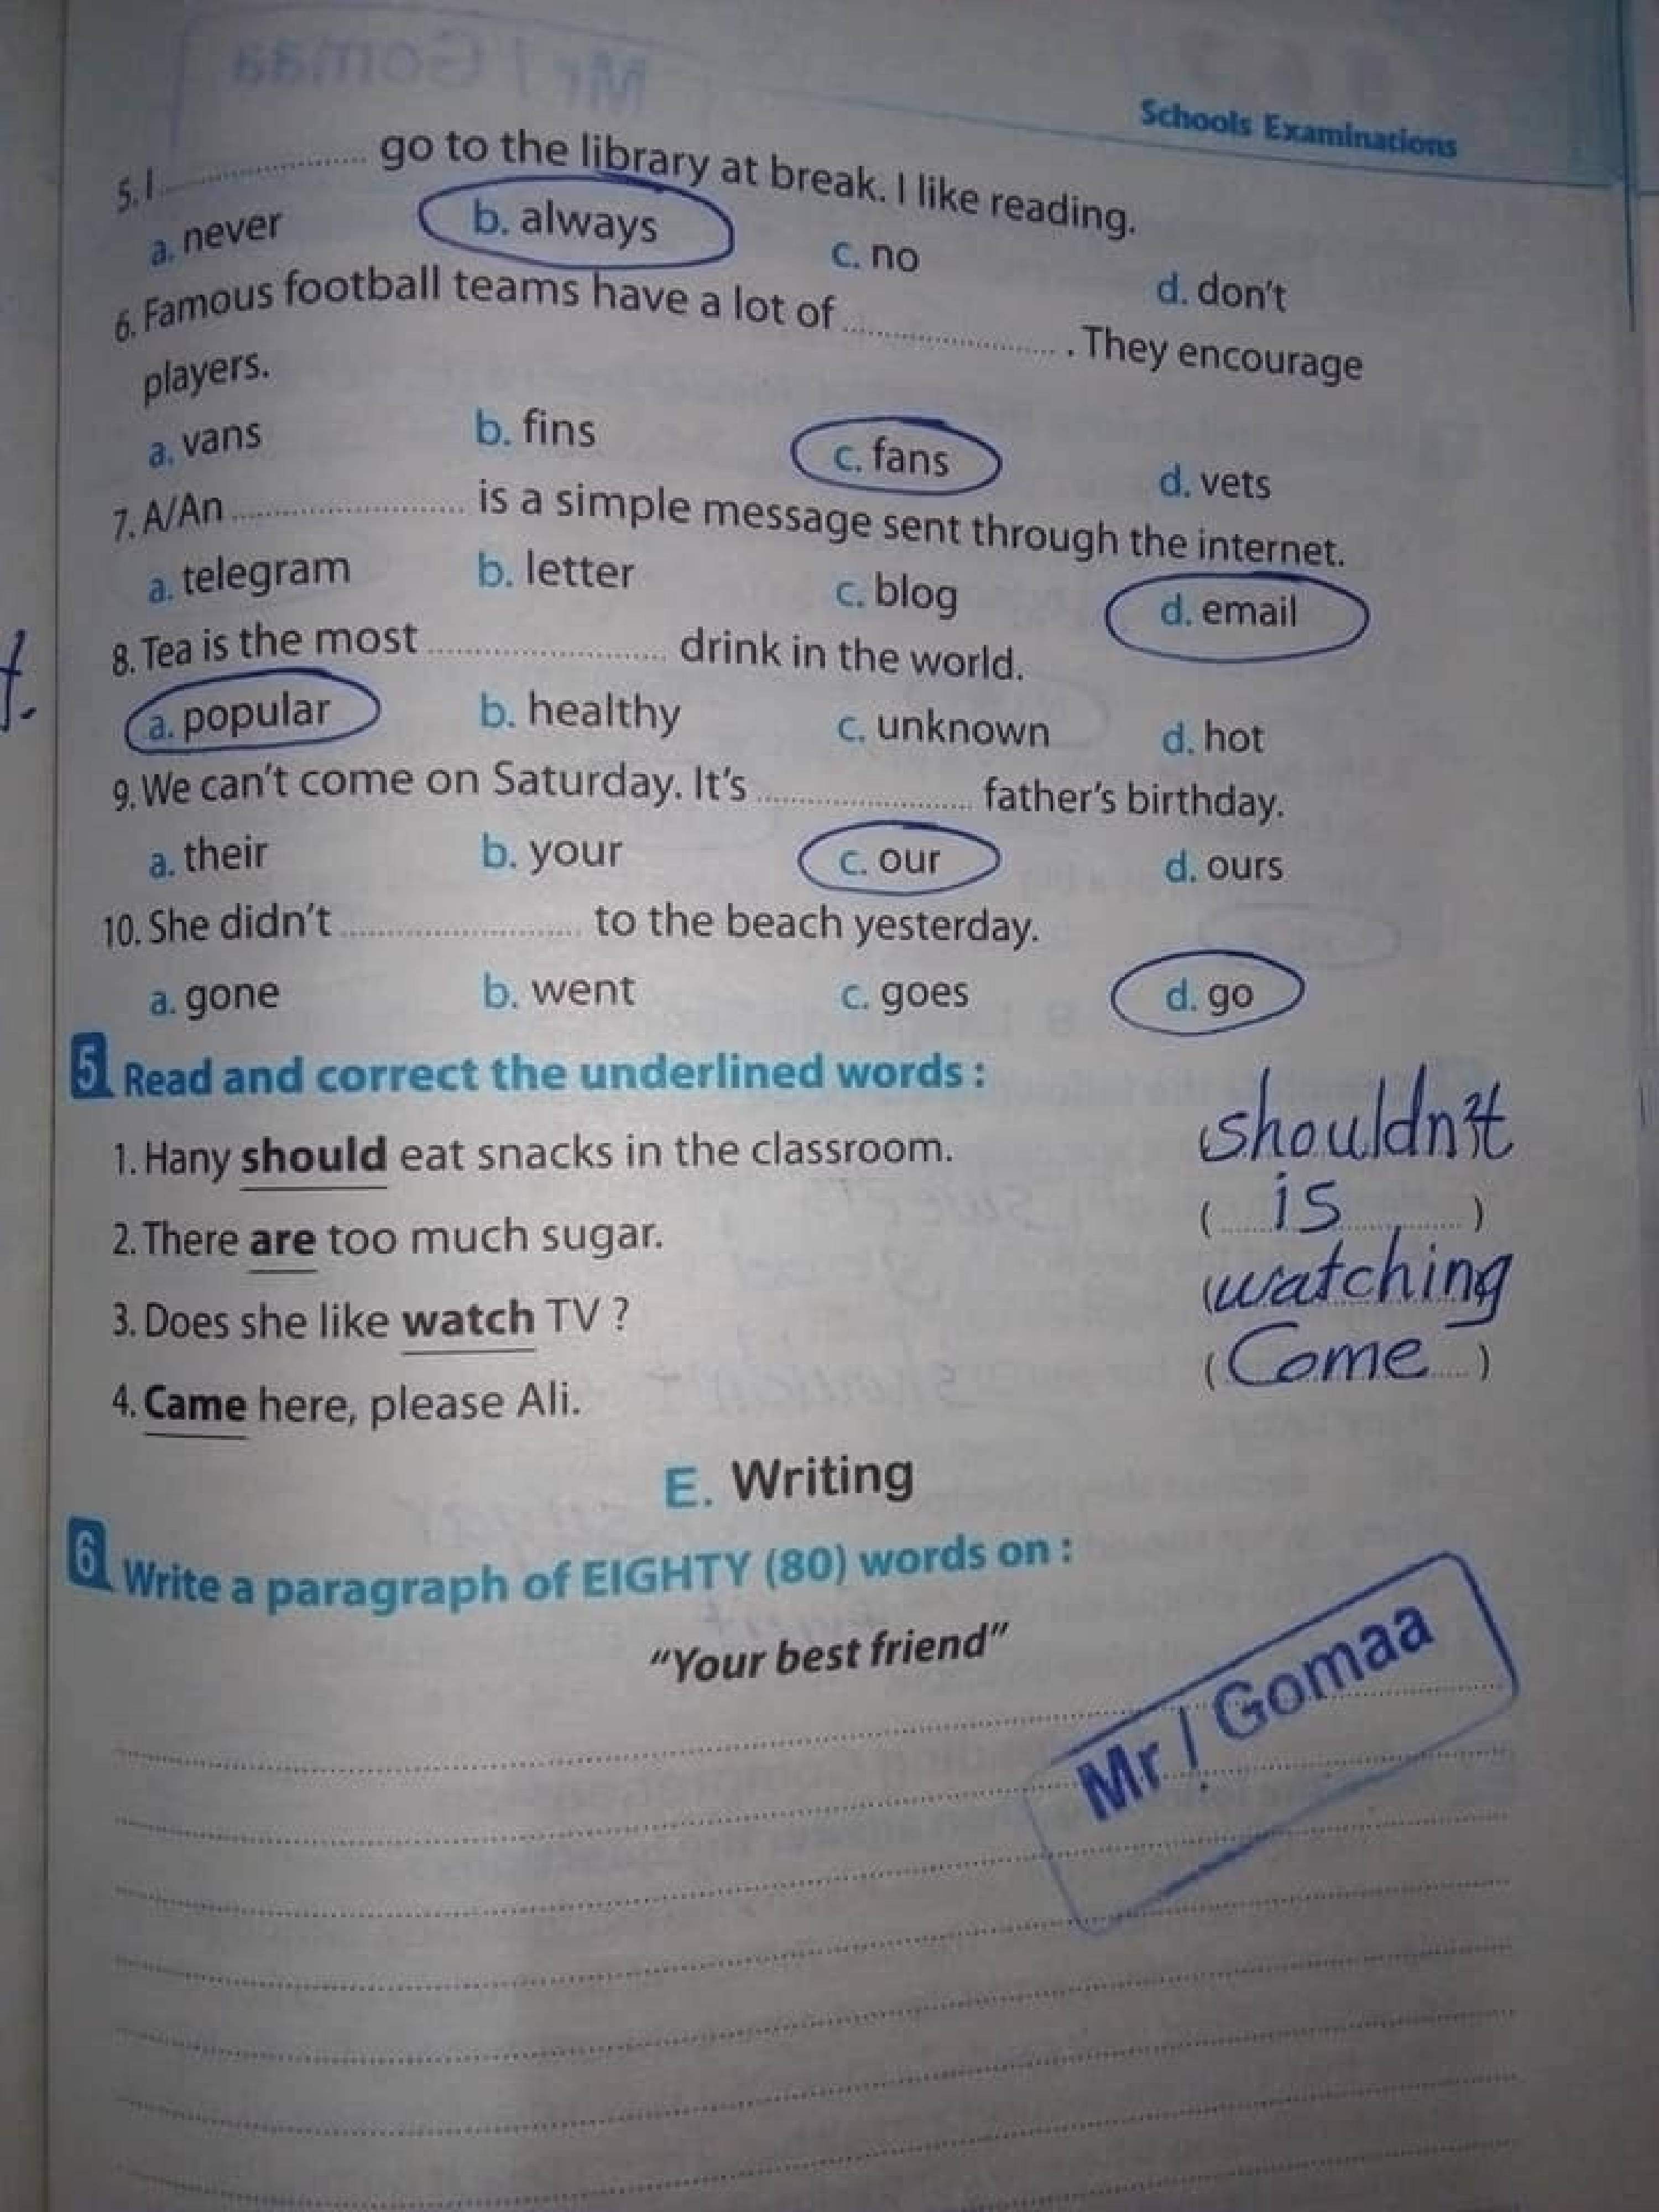 Schools Examinations
5. I .................... go to the library at break. I like reading.
a. never b. always c. no d. don't
6. Famous football teams have a lot of .................... . They encourage
players.
a. vans b. fins c. fans d. vets
7. A/An .................... is a simple message sent through the internet.
a. telegram b. letter c. blog d. email
8. Tea is the most .................... drink in the world.
a. popular b. healthy c. unknown d. hot
9. We can't come on Saturday. It's .................... father's birthday.
a. their b. your c. our d. ours
10. She didn't .................... to the beach yesterday.
a. gone b. went c. goes d. go
5 Read and correct the underlined words :
1. Hany should eat snacks in the classroom. shouldn't
2. There are too much sugar. ( is )
3. Does she like watch TV ? (watching
4. Came here, please Ali. ( Come )
E. Writing
6 Write a paragraph of EIGHTY (80) words on :
"Your best friend"
Mr / Gomaa